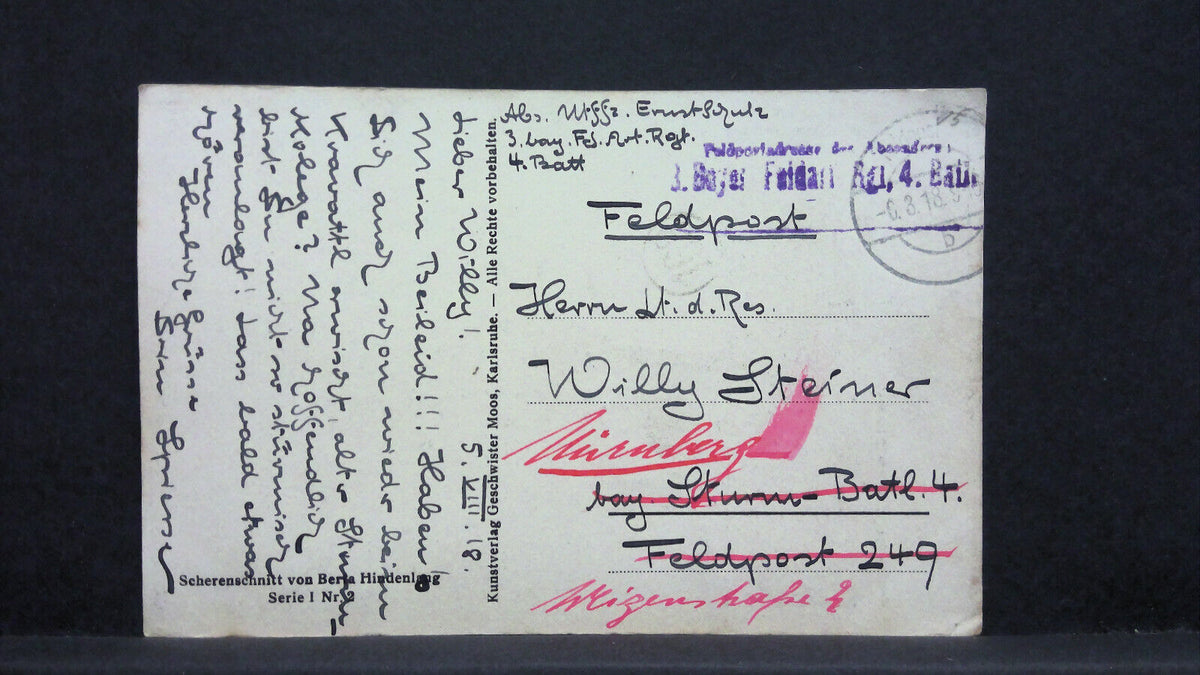 Abs. Uffz. Ernst Schulz
3. bay. Fd. Art. Rgt.
4. Batt
Feldpostadresse des Absenders:
3. Bayer Feldart Rgt, 4. Batt.
-6.8.18.
b
Feldpost
Herrn Lt. d. Res.
Willy Steiner
Nürnberg
bay. Sturm-Batl. 4.
Feldpost 249
2
5. VIII. 18.
Lieber Willy!
Mein Beileid!!! Haben
Dich auch schon wieder beim
Krawattl erwischt, alter Sturm-
kolege? Na hoffendlich
bist Du nicht so stürmisch
veranlagt! Lass bald etwas
hören
Herzliche Grüsse
Dein
Kunstverlag Geschwister Moos, Karlsruhe. — Alle Rechte vorbehalten.
Scherenschnitt von Berta Hindenlang
Serie I Nr. 2